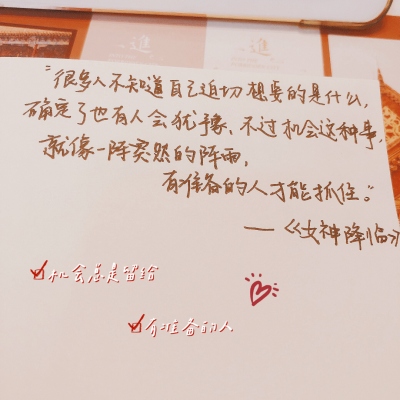 進
“很多人不知道自己迫切想要的是什么,
确定了也有人会犹豫、不过机会这种事,
就像一阵突然的阵雨,
有准备的人才能抓住。”
——《女神降临》
机会总是留给
有准备的人